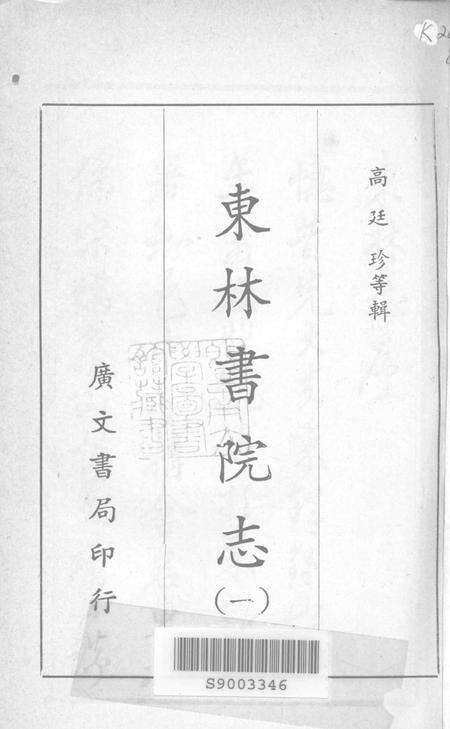 高廷珍等輯
東林書院志
(一)
廣文書局印行
S9003346